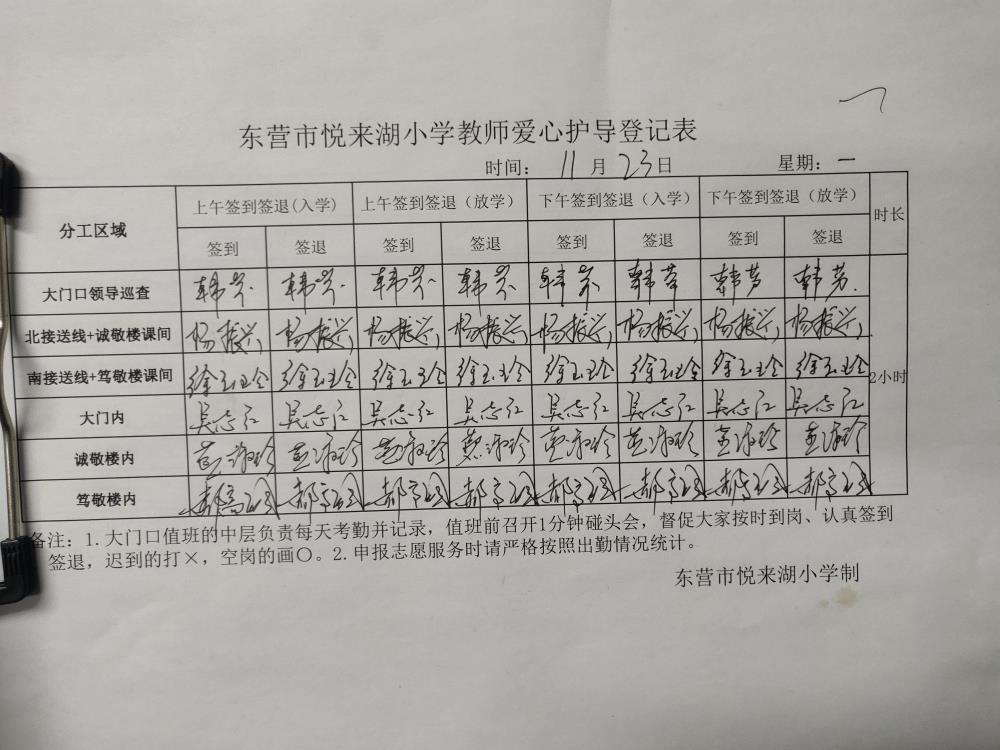 东营市悦来湖小学教师爱心护导登记表
时间： 11 月 23 日 星期： 一
分工区域 上午签到签退(入学) 上午签到签退（放学） 下午签到签退（入学） 下午签到签退（放学） 时长
签到 签退 签到 签退 签到 签退 签到 签退
大门口领导巡查 韩芳 韩芳 韩芳 韩芳 韩芳 韩芳 韩芳 韩芳
北接送线+诚敬楼课间 杨振兴 杨振兴 杨振兴 杨振兴 杨振兴 杨振兴 杨振兴 杨振兴
南接送线+笃敬楼课间 徐玉玲 徐玉玲 徐玉玲 徐玉玲 徐玉玲 徐玉玲 徐玉玲 徐玉玲
2小时
大门内 吴志红 吴志红 吴志红 吴志红 吴志红 吴志红 吴志红 吴志红
诚敬楼内
笃敬楼内
备注：1.大门口值班的中层负责每天考勤并记录，值班前召开1分钟碰头会，督促大家按时到岗、认真签到
签退，迟到的打×，空岗的画〇。2.申报志愿服务时请严格按照出勤情况统计。
东营市悦来湖小学制